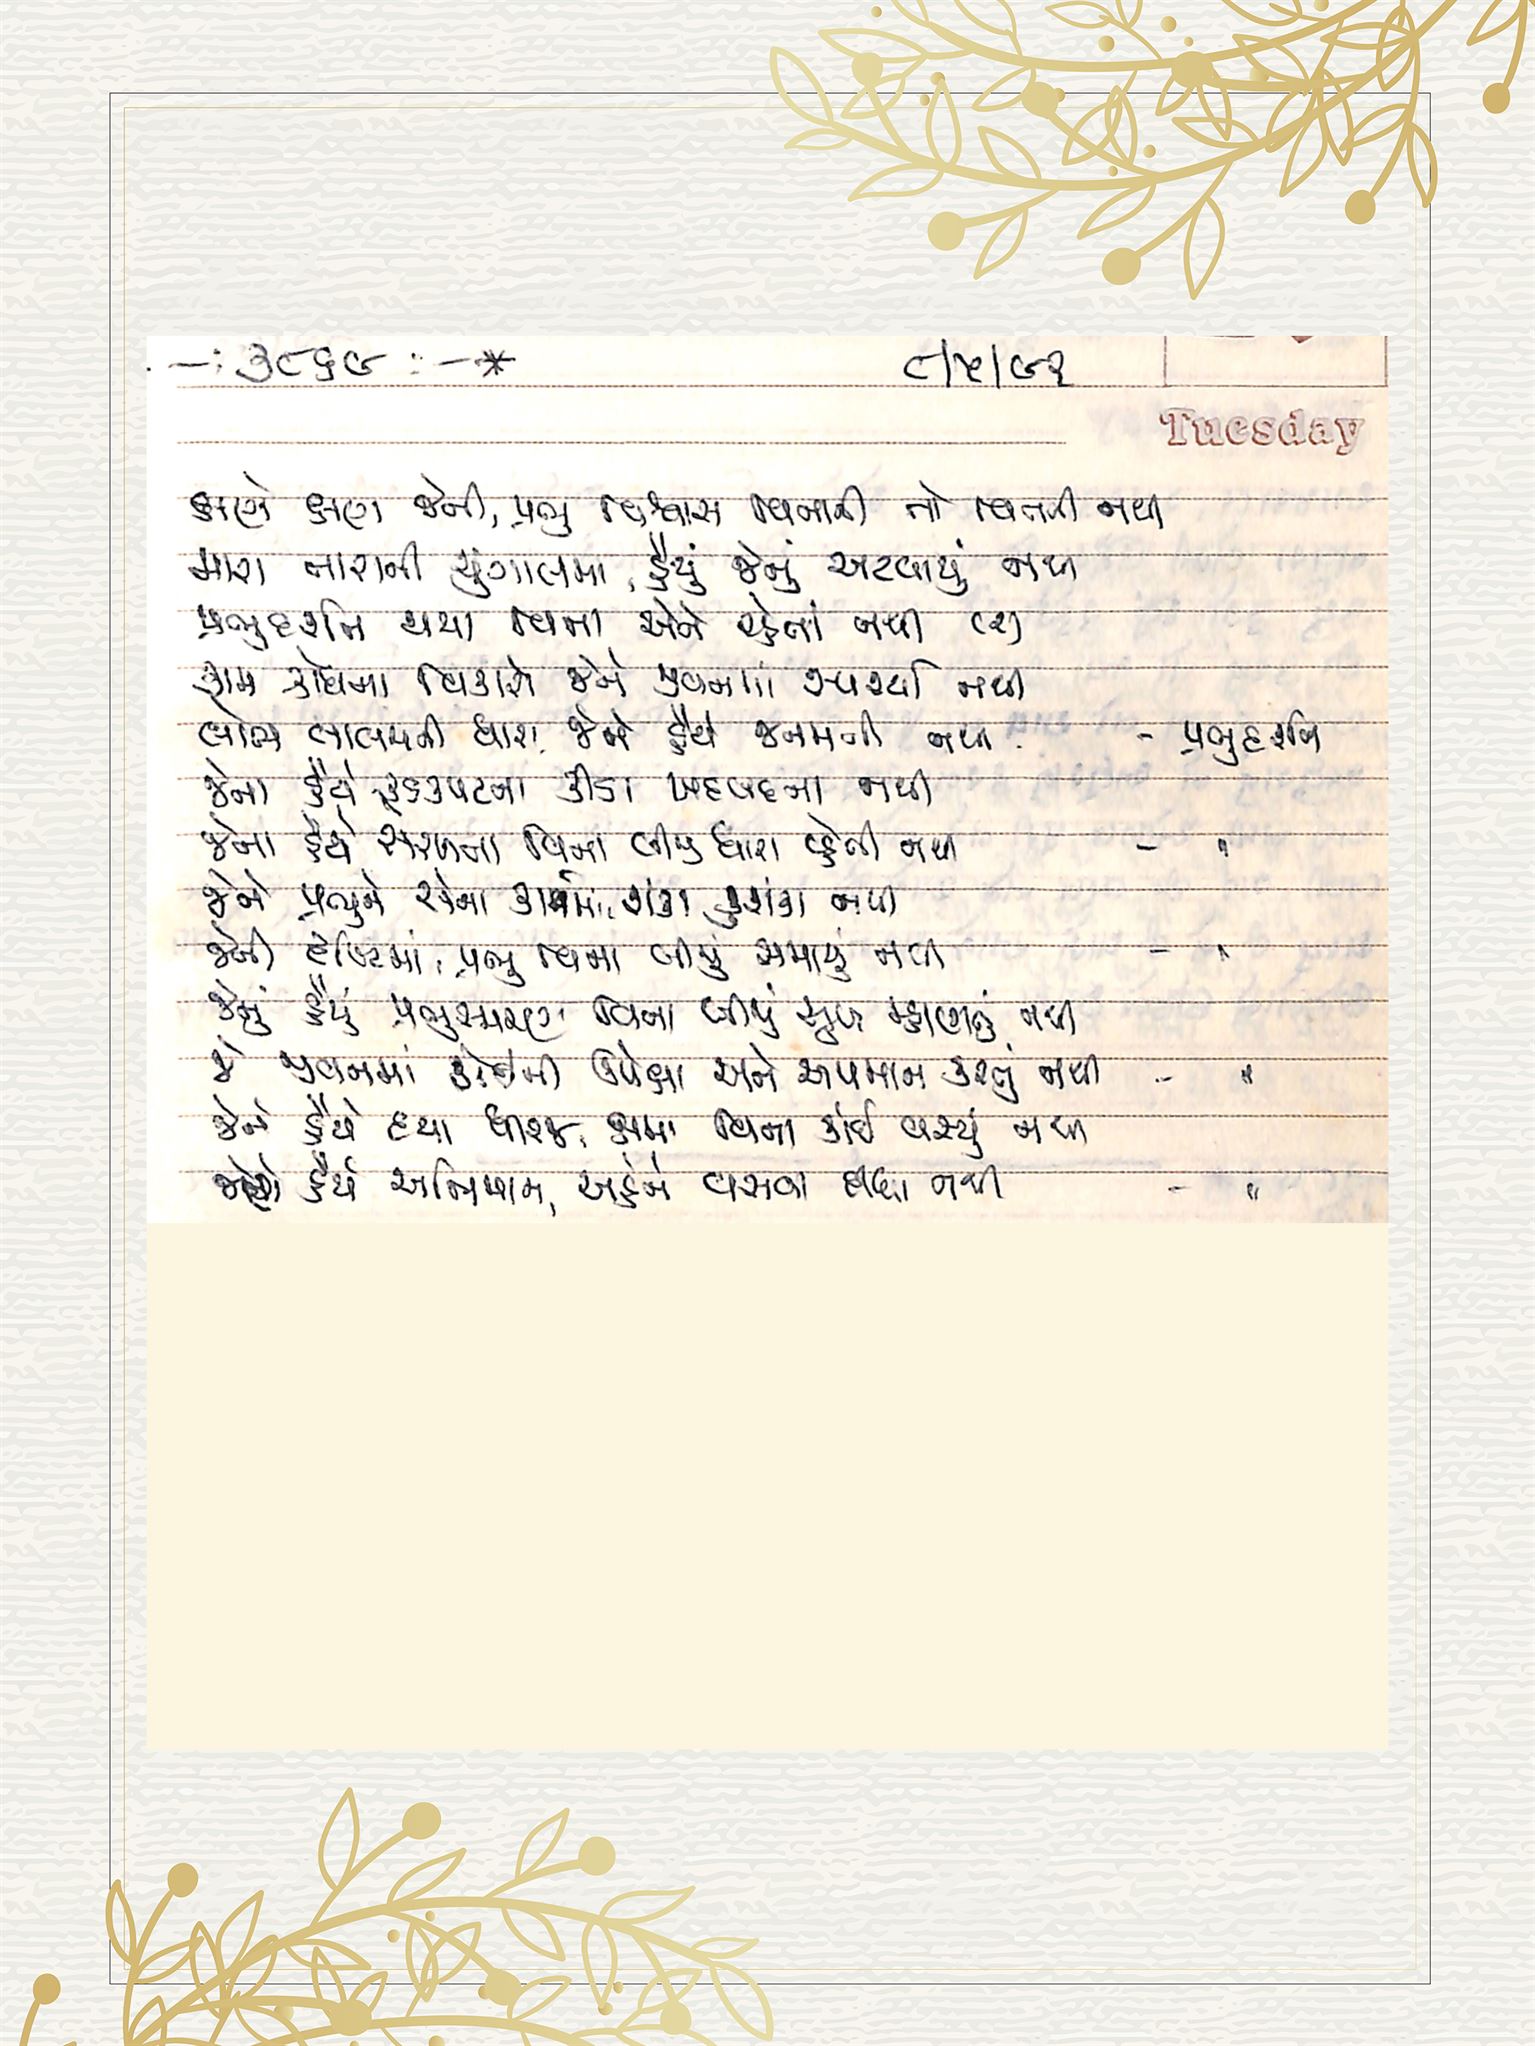 -: ૩૮૬૯ :- *
૮/૫/૯૨
Tuesday
ક્ષણે ક્ષણ જેની, પ્રભુ વિશ્વાસ વિનાની તો વિતતી નથી
મારા તારાની ચુંગાલમાં, હૈયું જેનું અટવાયું નથી
પ્રભુદર્શન થયા વિના એને રહેતાં નથી (૨)
કામ ક્રોધના વિકારો જેને જીવનમાં સ્પર્શ્યા નથી
લોભ લાલચની ધારા જેને હૈયે જનમતી નથી - પ્રભુદર્શન
જેના હૈયે કૂડકપટના કીડા ખદબદતા નથી
જેના હૈયે સરળતા વિના બીજી ધારા વ્હેતી નથી - "
જેને પ્રભુને એના કાર્યમાં, શંકા કુશંકા નથી
જેની દૃષ્ટિમાં, પ્રભુ વિના બીજું સમાયું નથી - "
જેનું હૈયું પ્રભુસ્મરણ વિના બીજું સુખ માણતું નથી
જે જીવનમાં કોઈની ઉપેક્ષા અને અપમાન કરતું નથી - "
જેને હૈયે દયા ધીરજ, ક્ષમા વિના કાંઈ વસ્યું નથી
જેણે હૈયે અભિમાન, અહંને વસવા દીધા નથી - "